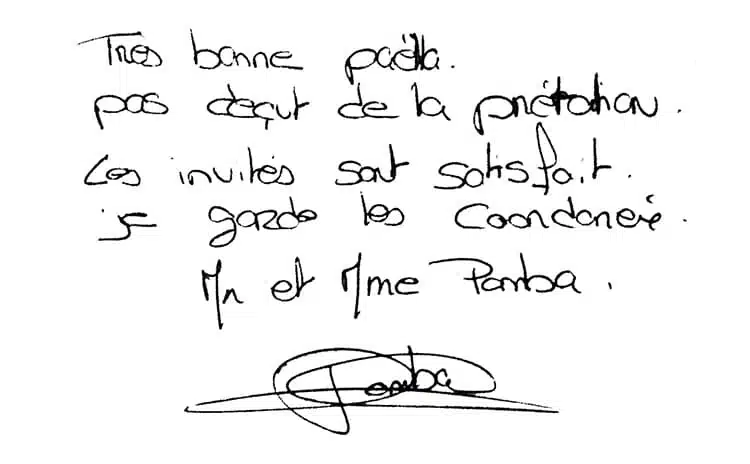 Tres bonne paëlla.
pas deçut de la prétation.
Les invités sont satisfait.
je garde les Coordoneé.
Mr et Mme Pamba.
Pamba